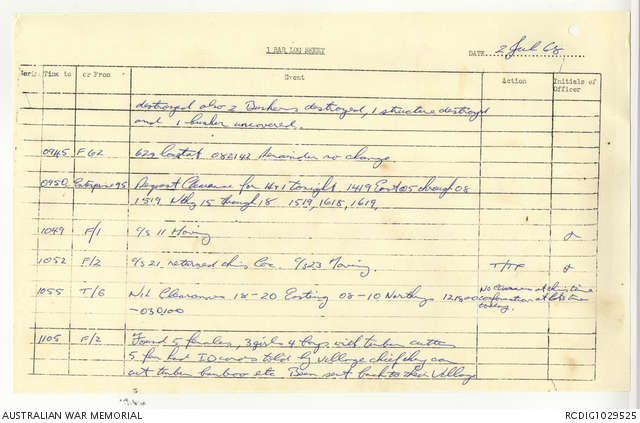 1 RAR LOG SHEET
DATE 2 Jul 68
Serial Time to or From Event Action Initials of Officer
destroyed also 2 Bunkers destroyed, 1 structure destroyed
and 1 bunker uncovered.
0945 F 62 62 Locstat 082142 Remainder no change.
0950 Enterprise 95 Request Clearance for H&I tonight 1419 East 05 through 08
1519 Nthg 15 through 18 1519, 1618, 1619,
1049 F/1 C/S 11 Moving
1052 F/2 C/S 21 returned this Loc. C/S 23 Moving. T/TF
1055 T/6 Nil Clearances 18-20 Easting 08-10 Northings 121500
-030100
No Clearances at this time confirmation at later time today.
1105 F/2 Found 5 females, 3 girls 4 boys with timber cutters
5 fem had ID cards told by village chief they can
cut timber bamboo etc Been sent back to their Village
AUSTRALIAN WAR MEMORIAL
RCDIG1029525